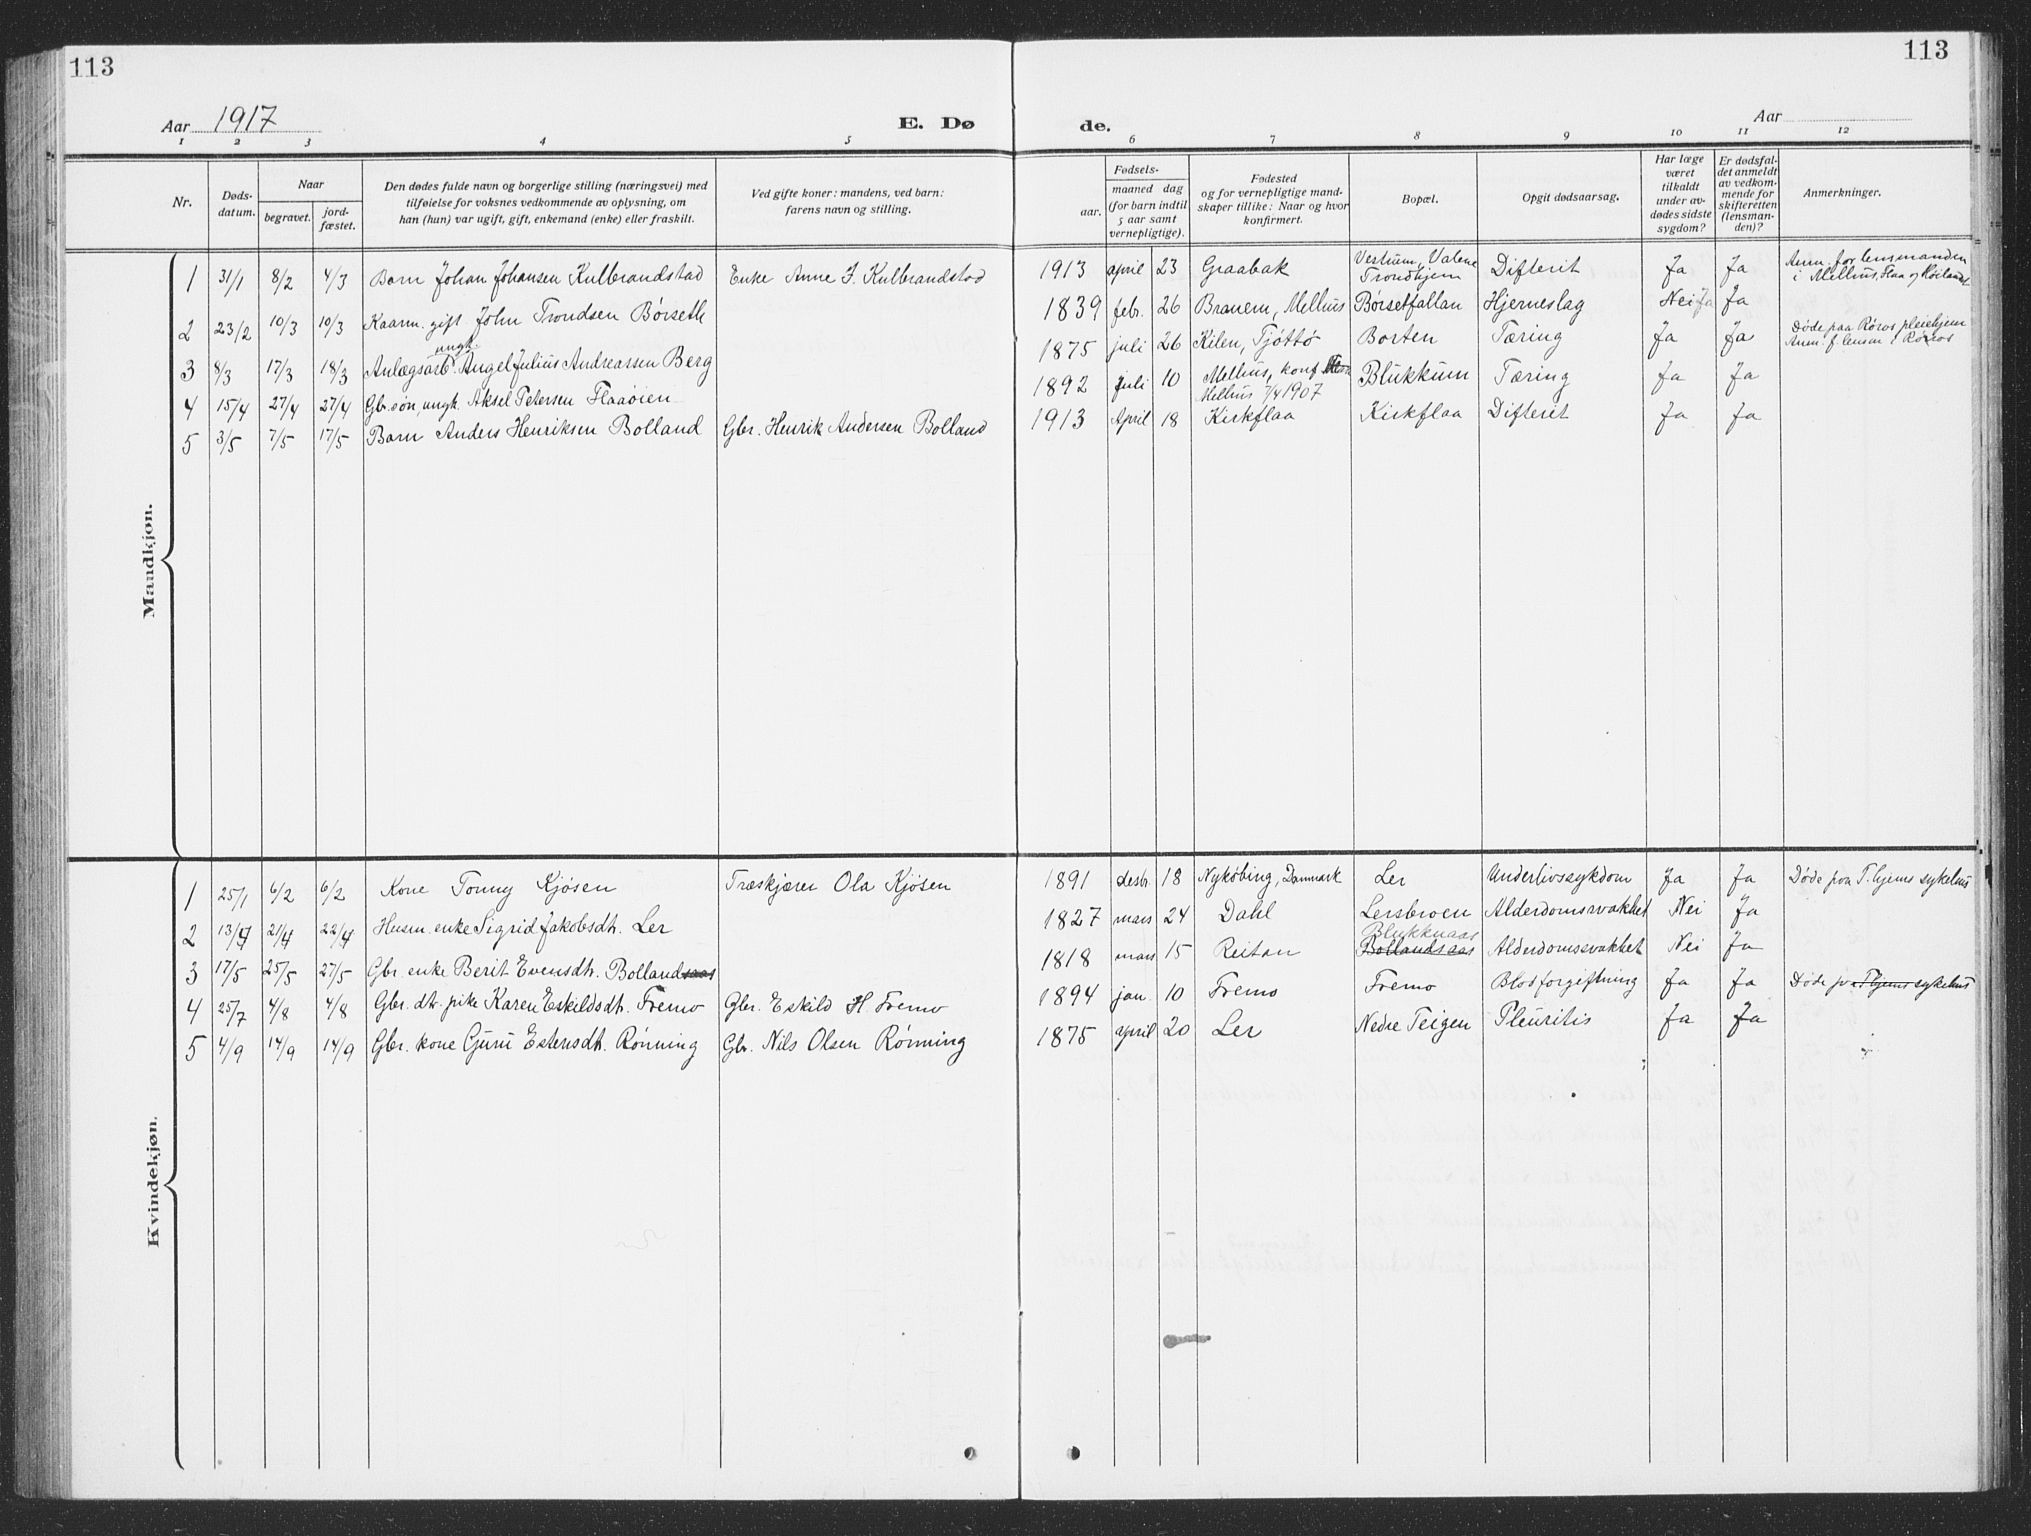 113
113
Aar 1917
E. Dø
de.
Aar
1 2 3 4 5 6 7 8 9 10 11 12
Nr.
Døds-
datum.
Naar
begravet.
jord-
fæstet.
Den dødes fulde navn og borgerlige stilling (næringsvei) med
tilføielse for voksnes vedkommende av oplysning, om
han (hun) var ugift, gift, enkemand (enke) eller fraskilt.
Ved gifte koner: mandens, ved barn:
farens navn og stilling.
aar.
Fødsels-
maaned dag
(for barn indtil
5 aar samt
vernepligtige).
Fødested
og for vernepligtige mand-
skaper tillike: Naar og hvor
konfirmert.
Bopæl.
Opgit dødsaarsag.
Har læge
været
tilkaldt
under av-
dødes sidste
sygdom?
Er dødsfal-
det anmeldt
av vedkom-
mende for
skifteretten
(lensman-
den)?
Anmerkninger.
Mandkjøn.
1 31/1 8/2 4/3 Barn Johan Johansen Kulbrandstad Enke Anne J. Kulbrandstad 1913 april 23 Graabak Vestum, Trondhjem Difterit Ja Ja Anm. for lensmanden
i Melhus, Flaa og Høilandet
2 23/2 10/3 10/3 Kaarm. gift. John Trondsen Børseth 1839 febr. 26 Branem, Melhus Børsetfallan Hjerneslag Nei Ja Ja
3 8/3 17/3 18/3 Anlægsarb. ungk. Angel Julius Andreassen Berg 1875 juli 26 Kilen, Tjøttø Borten Tæring Ja Ja Døde paa Røros pleiehjem
Anm f lensm i Røros
4 15/4 27/4 27/4 Gbr. søn, ungk. Aksel Petersen Flaaøien 1892 juli 10 Melhus, konf.
Melhus 7/4 1907 Blukkum Tæring Ja Ja
5 3/5 7/5 17/5 Barn Anders Henriksen Bolland Gbr. Henrik Andersen Bolland 1913 April 18 Kirkflaa Kirkflaa Difterit Ja Ja
Kvindekjøn.
1 25/1 6/2 6/2 Kone Tonny Kjøsen Træskjærer Ola Kjøsen 1891 desbr. 18 Nykøbing, Danmark Ler Underlivssykdom Ja Ja Døde paa T.hjems sykehus
2 13/4 21/4 22/4 Husm. enke Sigrid Jakobsdt. Ler 1827 mars 24 Dahl Lersbroen Alderdomssvakhet Nei Ja
3 17/5 25/5 27/5 Gbr. enke Berit Evensdt. Bollandsaas 1818 mars 15 Reitan Blukknaas Bollandsaas Alderdomssvakhet Nei Ja
4 25/7 4/8 4/8 Gbr. dtr. pike Karen Eskildsdt. Fremo Gbr. Eskild H. Fremo 1894 jan. 10 Fremo Fremo Blodforgiftning Ja Ja Døde paa T.hjems sykehus
5 4/9 14/9 14/9 Gbr. kone Guru Estensdt. Rønning Gbr. Nils Olsen Rønning 1875 april 20 Ler Nedre Teigen Pleuritis Ja Ja